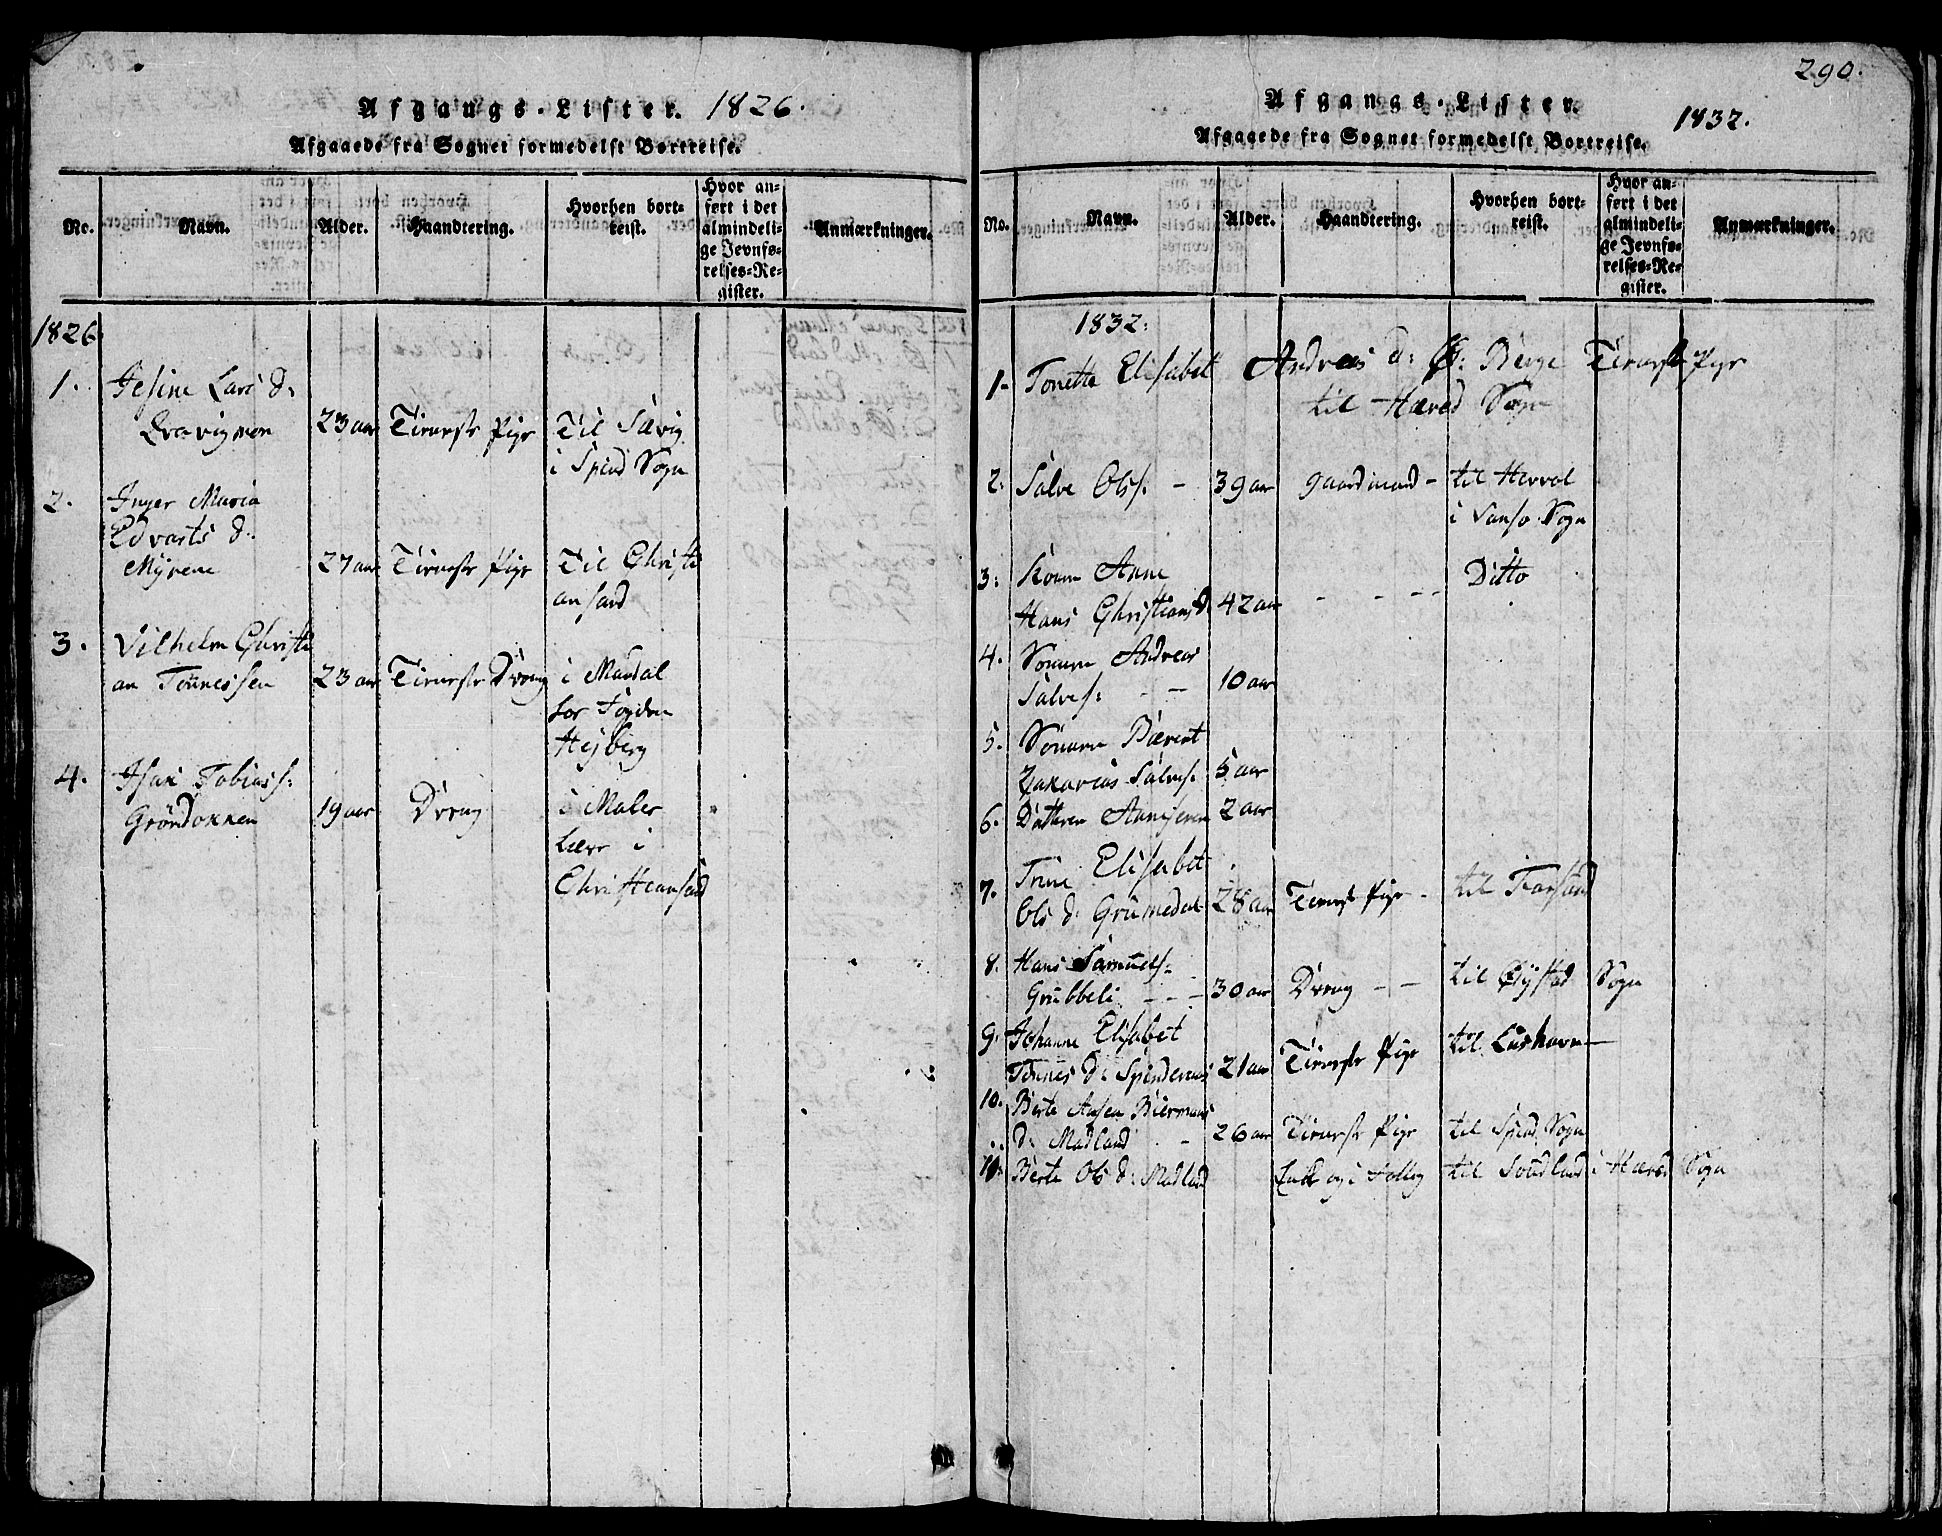 Afgangs-Lister. 1826.
Afgaaede fra Sognet formedelst Bortreise.
No. Navn. Alder. Haandtering. Hvorhen bortreist. Hvor anført i det almindelige Jevnførelses-Register. Anmærkninger.
1826
1. Jesine Lars d:
23 aar Tieneste Pige Til Sævig
i Spind Sogn
2. Inger Maria
Edvarts d.
Myrene 27 aar Tieneste Pige Til Christi
ansand
3. Vilhelm Christi
an Tønnessen 23 aar Tieneste Dreng i Mandal
hos Fogden
Hejberg
4. Isak Tobiass:
Grøndokken 19 aar Dreng i Maler
Lære i
Christiansand
290.
Afgangs-Lister. 1832.
Afgaaede fra Sognet formedelst Bortreise.
No. Navn. Alder. Haandtering. Hvorhen bortreist. Hvor anført i det almindelige Jevnførelses-Register. Anmærkninger.
1832.
1. Tonette Elisabet Andreas d: Ø: Berge Tieneste Pige
til Hæred Sogn
2. Salve Ols: - 39 aar gaardmand - til
i Sogn
3. Anne Ditto
Hans Christians d. 42 aar - - - -
4. Sønnen Andreas
Salves: - - 10 aar
5. Sønnen Bærent
Zakarias Salves. 5 aar
6. Datteren 2 aar
7. Trine Elisabet
Ols d: Grumedal 28 aar Tieneste Pige - til Farsund
8. Hans Samuels:
Grubbeli - - - 30 aar Dreng - - til Øiestad Sogn
9. Johanne Elisabet
Tønnes d: 21 aar Tieneste Pige til Lushavn
10. Berte
d: Madland - 26 aar Tieneste Pige til Spind Sogn
11. Berte Ols d: Madland til Sandland i Hæred Sogn